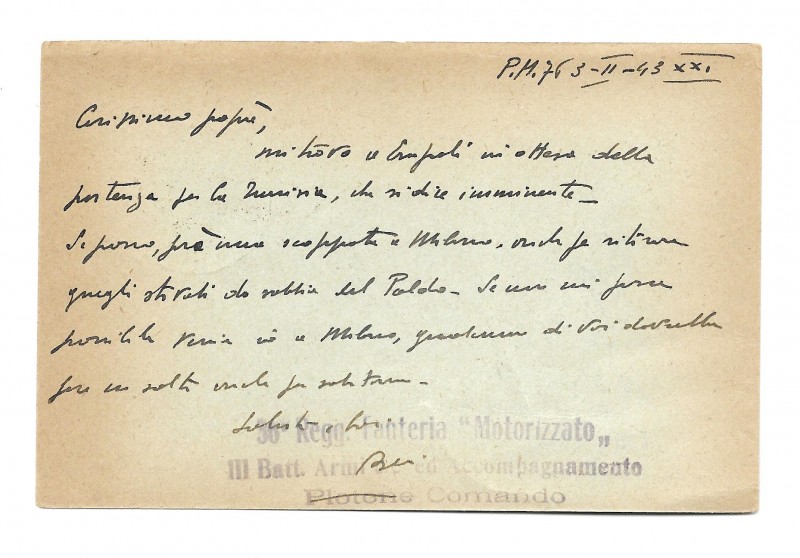 P.M. 76 3-II-43 XXI
Carissimo papà,
mi trovo a Empoli in attesa della
partenza per la Tunisia, che si dice imminente_
Se posso, farò una scappata a Milano, anche per ritirare
quegli stivali da sabbia del Poldo_ Se non mi fosse
possibile venir io a Milano, qualcuno di voi dovrebbe
fare un salto anche per salutarmi_
Saluti
Regg. Fanteria "Motorizzato"
III Batt. Armi ed Accompagnamento
Plotone Comando